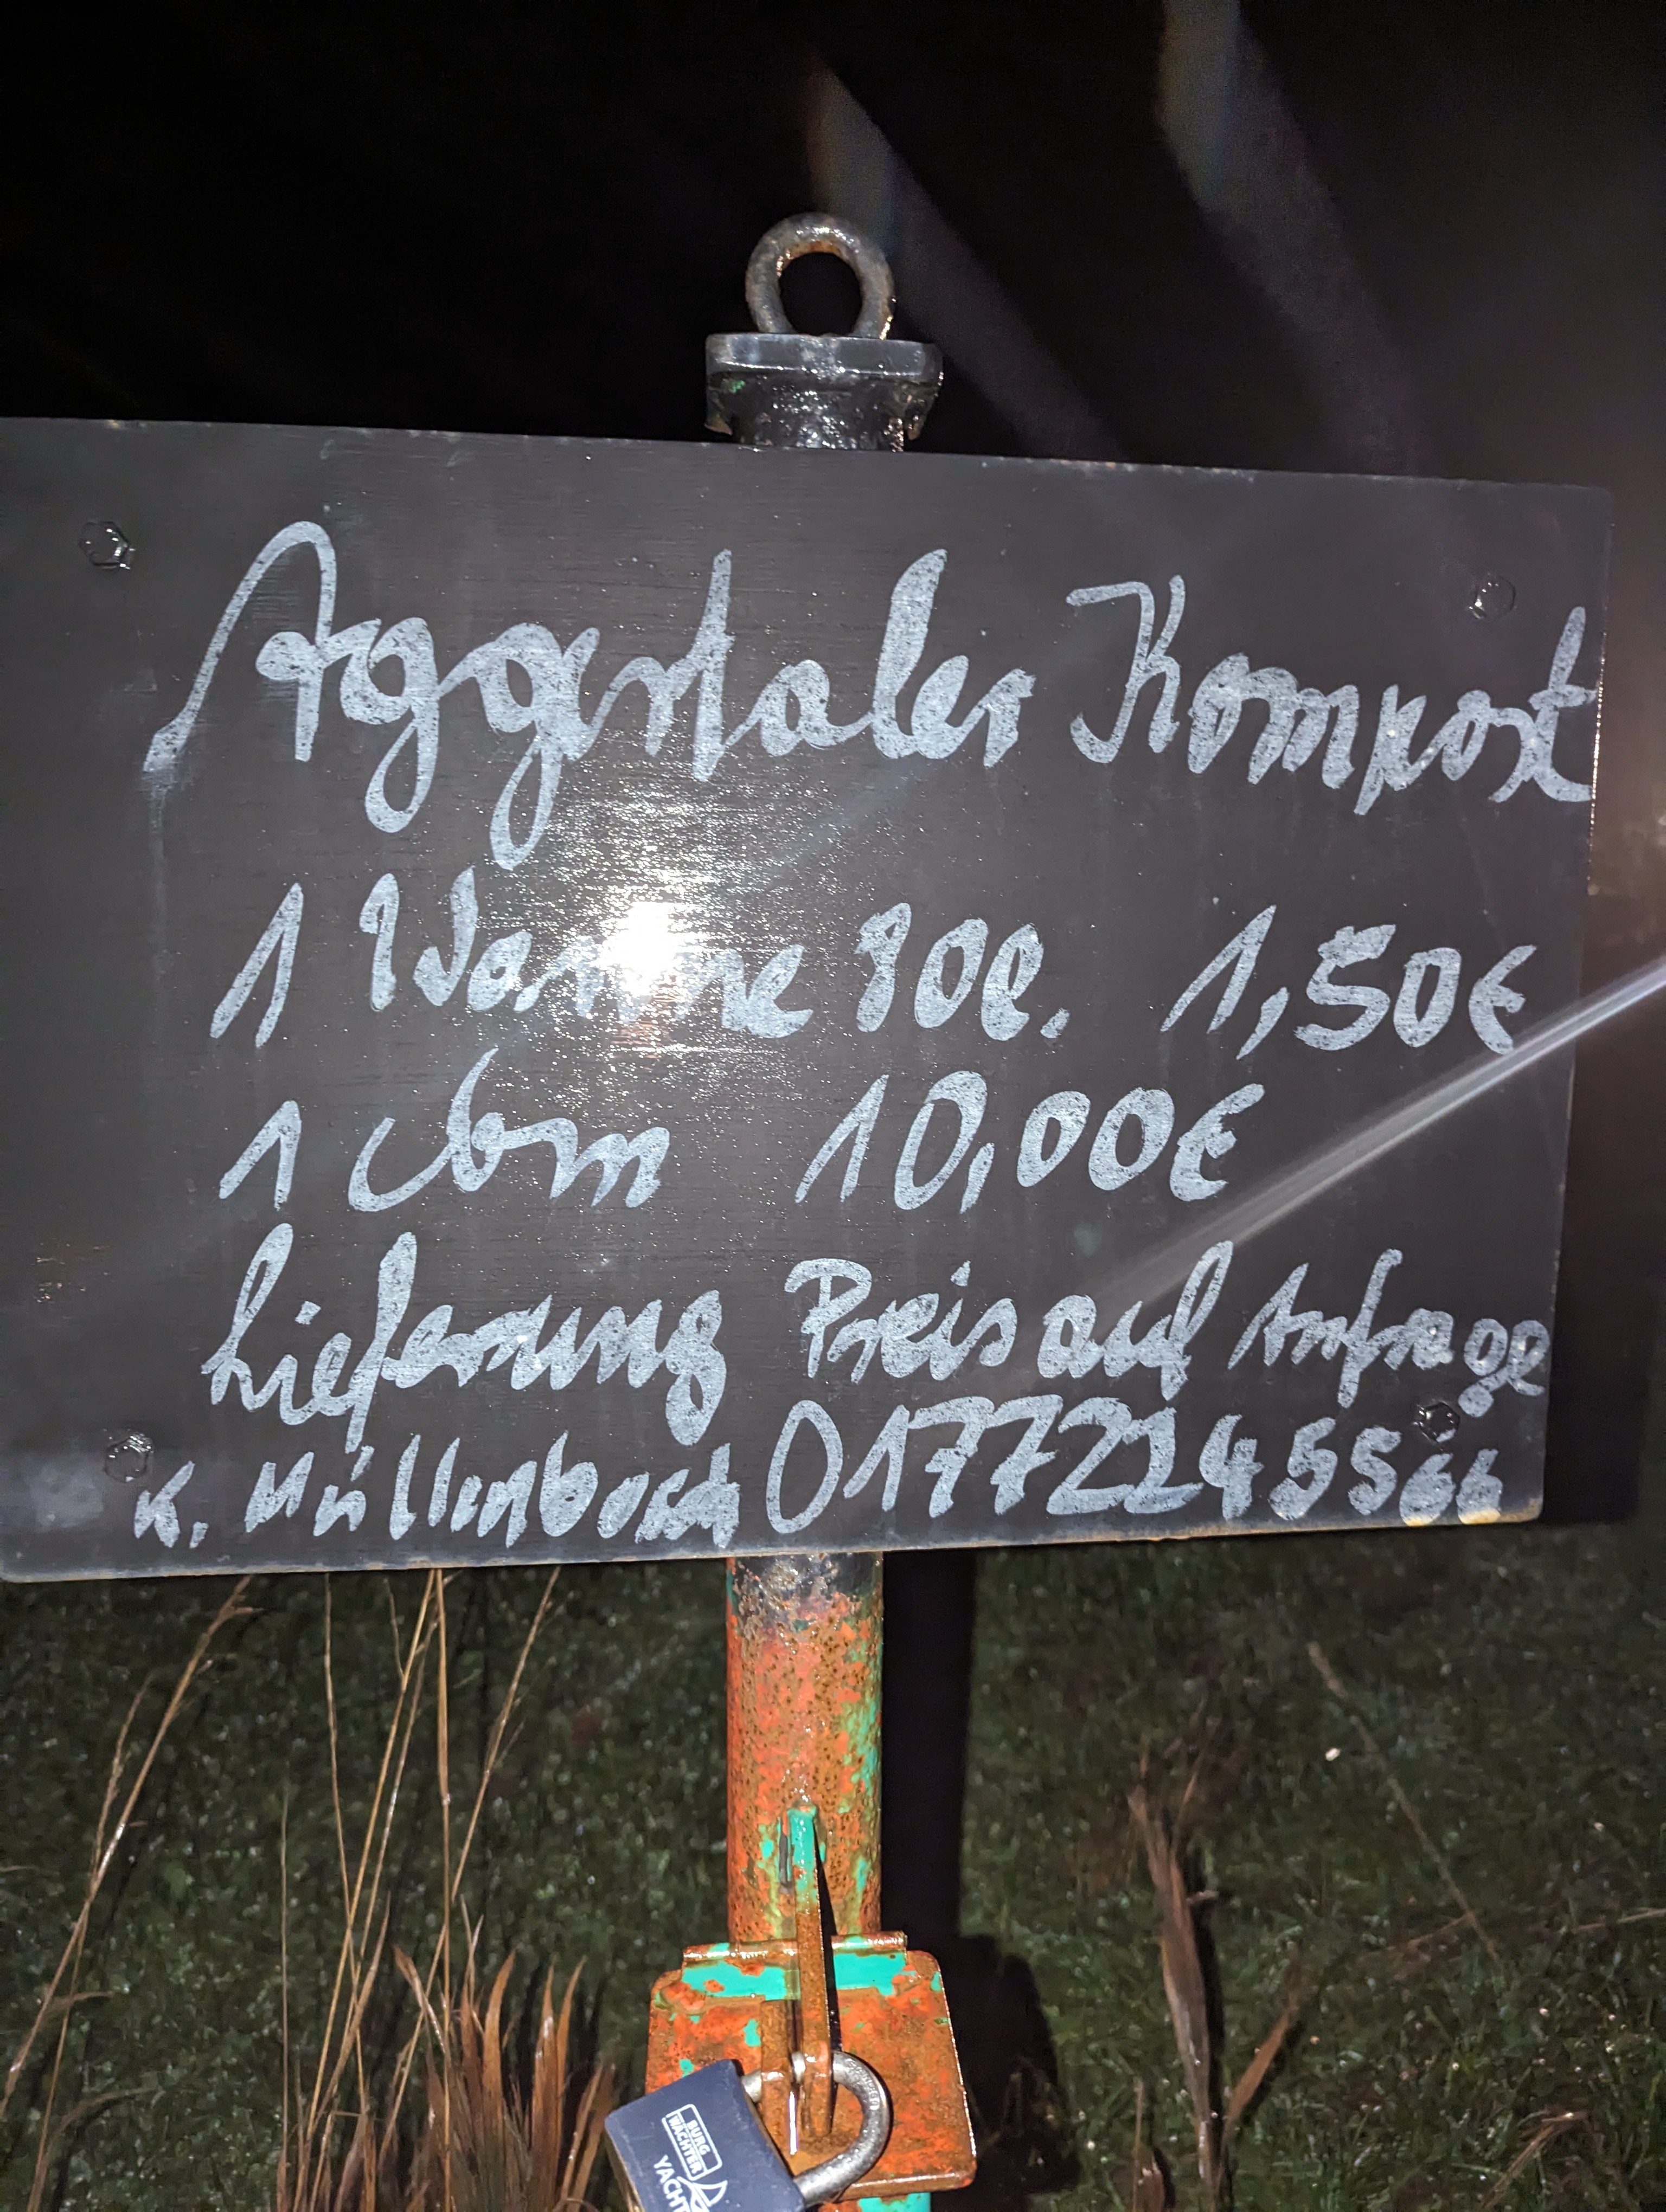 Aggertaler Kompost
1 Wanne 90l. 1,50€
1 cbm 10,00€
Lieferung Preis auf Anfrage
K. Müllenbach 01772245566
BURG
WÄCHTER
YACHT